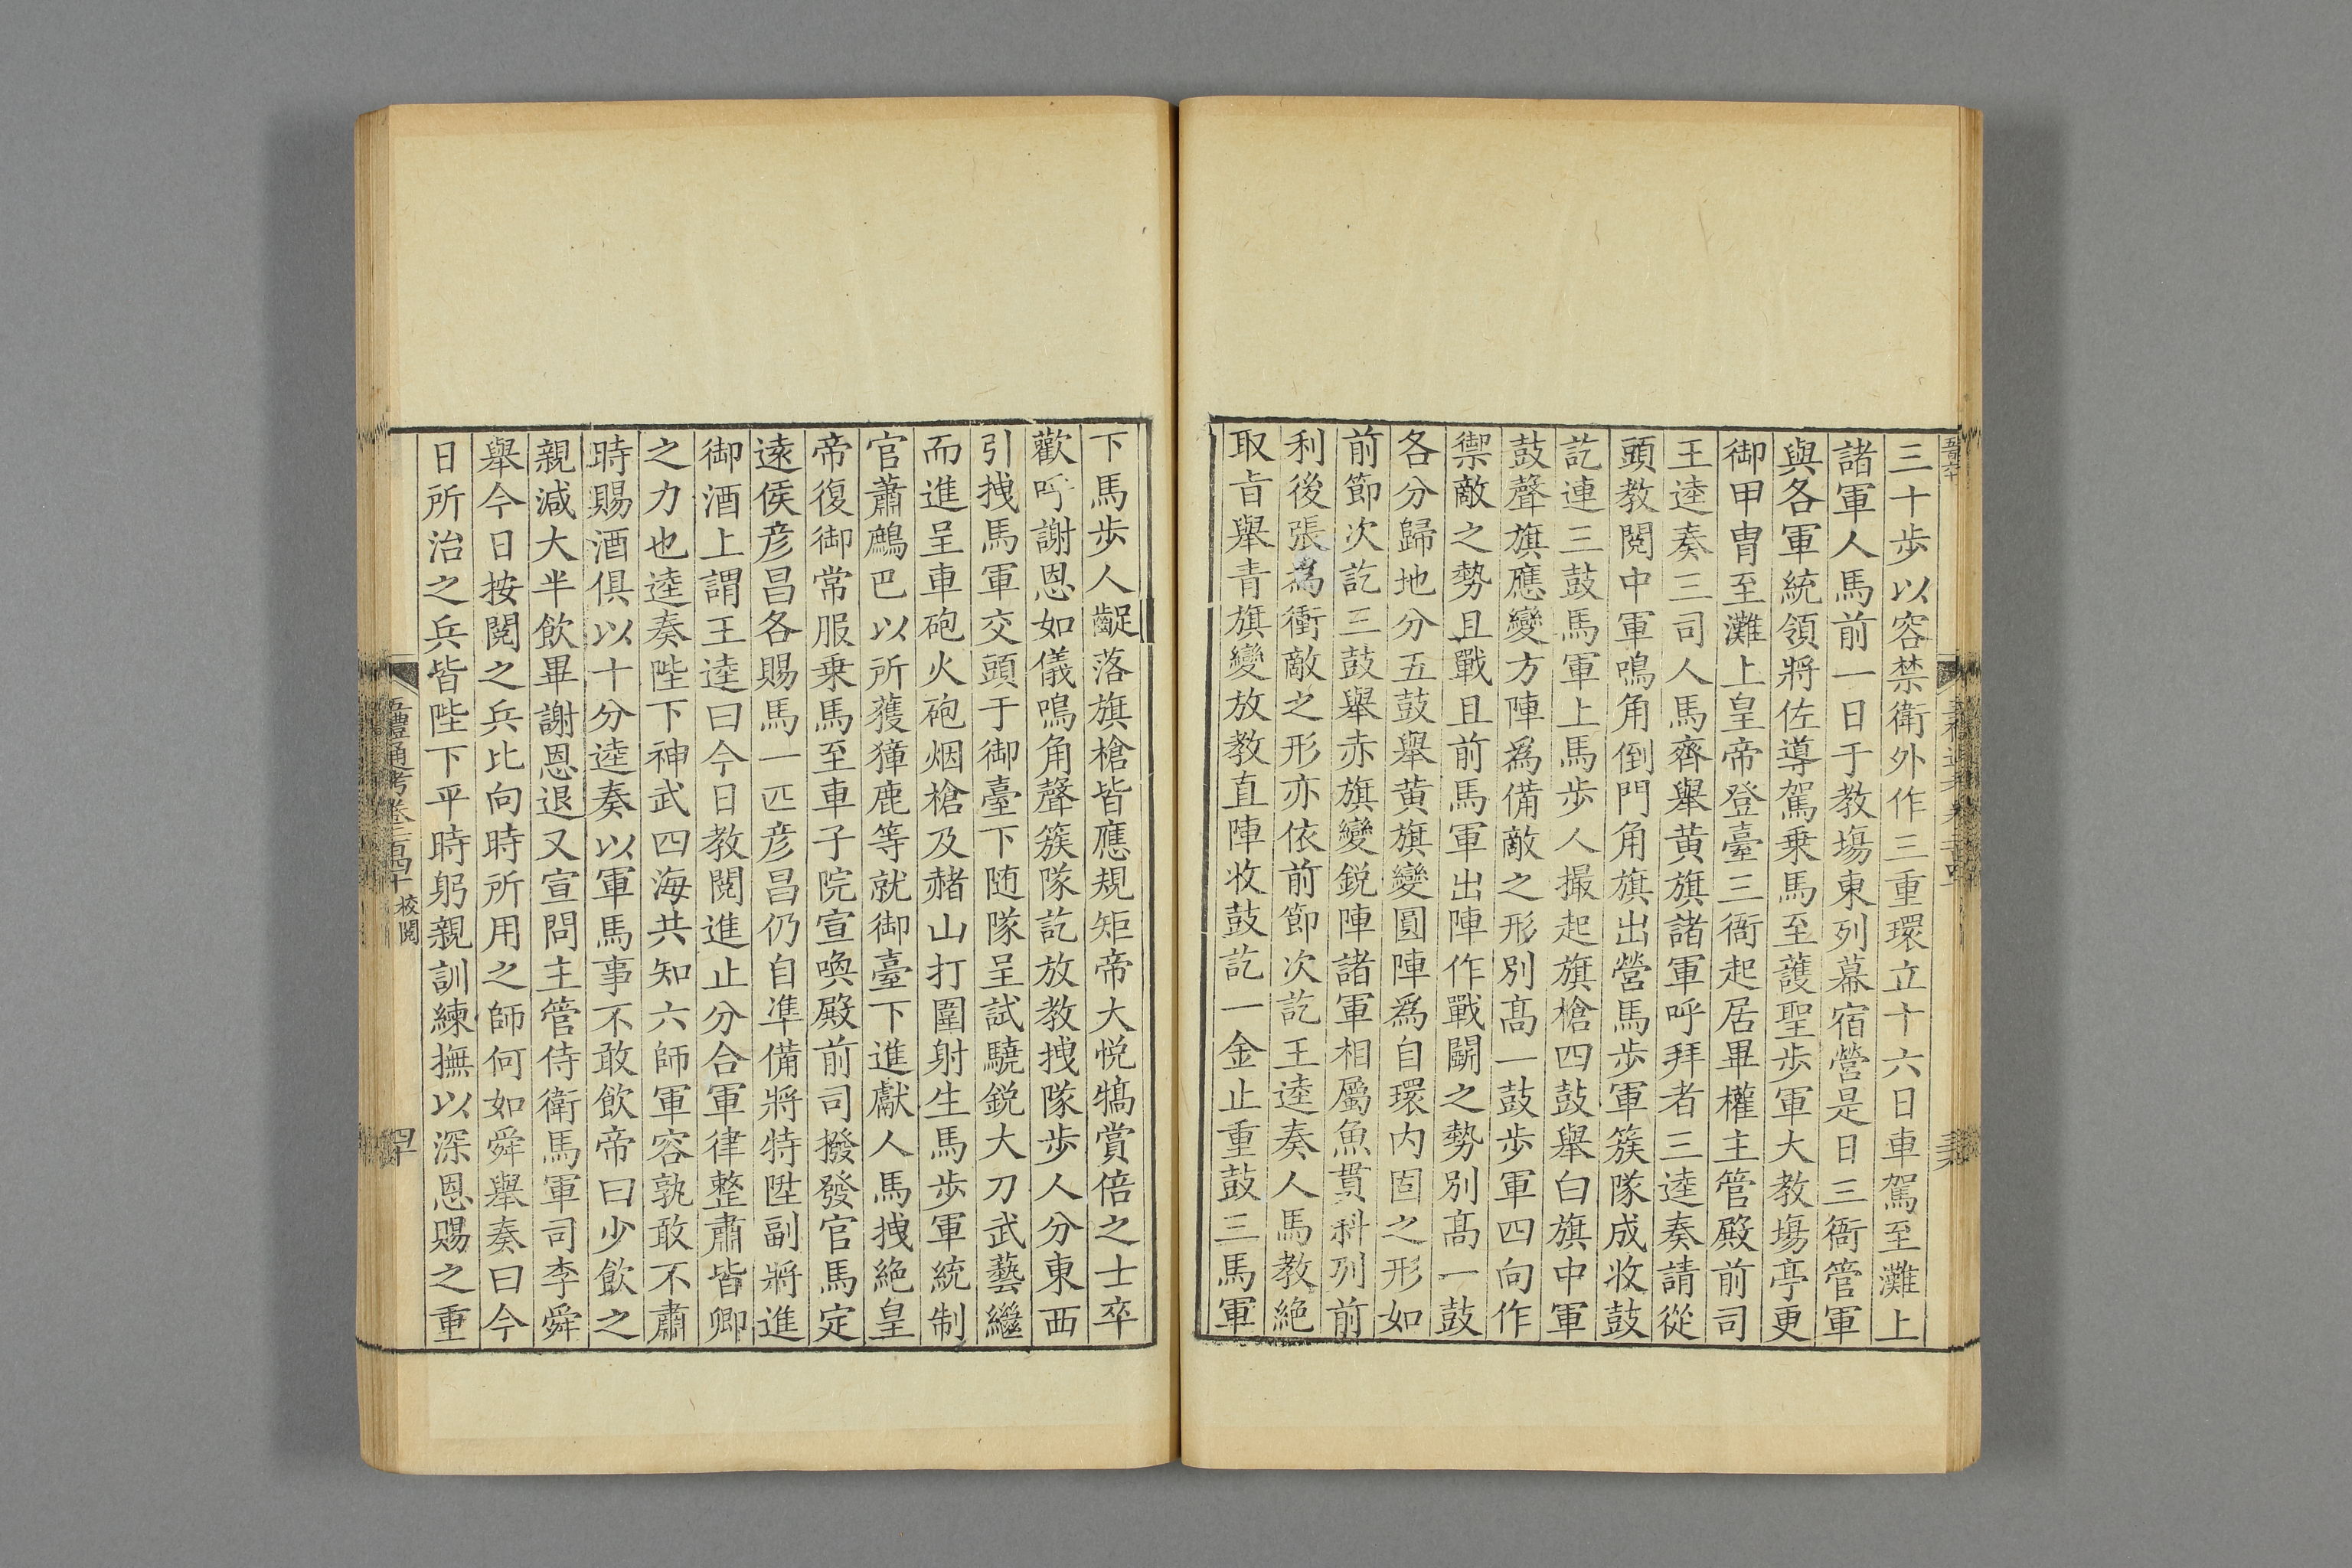 三十步以容禁衛外作三重環立十六日車駕至灘上
諸軍人馬前一日于教場東列幕宿營是日三衙管軍
與各軍統領將佐導駕乗馬至護聖步軍大教場亭更
御甲冑至灘上皇帝登臺三衙起居畢權主管殿前司
王逵奏三司人馬齊舉黄旗諸軍呼拜者三逵奏請從
頭教閱中軍鳴角倒門角旗出營馬步軍簇隊成收鼓
訖連三鼓馬軍上馬步人撮起旗槍四鼓舉白旗中軍
鼓聲旗應變方陣爲備敵之形別髙一鼓步軍四向作
禦敵之勢且戰且前馬軍出陣作戰鬬之勢別髙一鼓
各分歸地分五鼓舉黄旗變圓陣爲自環内固之形如
前節次訖三鼓舉赤旗變銳陣諸軍相屬魚貫科列前
利後張爲衝敵之形亦依前節次訖王逵奏人馬教絶
取旨舉青旗變放教直陣收鼓訖一金止重鼓三馬軍
下馬步人齪落旗槍皆應規矩帝大悅犒賞倍之士卒
歡呼謝恩如儀鳴角聲簇隊訖放教拽隊步人分東西
引拽馬軍交頭于御臺下随隊呈試驍銳大刀武藝繼
而進呈車砲火砲烟槍及赭山打圍射生馬步軍統制
官蕭鷓巴以所獲獐鹿等就御臺下進獻人馬拽絶皇
帝復御常服乗馬至車子院宣喚殿前司撥發官馬定
逺侯彦昌各賜馬一匹彦昌仍自準備將特陞副將進
御酒上謂王逵曰今日教閱進止分合軍律整肅皆卿
之力也逵奏陛下神武四海共知六師軍容孰敢不肅
時賜酒俱以十分逵奏以軍馬事不敢飲帝曰少飲之
親減大半飲畢謝恩退又宣問主管侍衛馬軍司李舜
舉今日按閱之兵比向時所用之師何如舜舉奏曰今
日所治之兵皆陛下平時躬親訓練撫以深恩賜之重
五禮通考卷二百四十 校閱